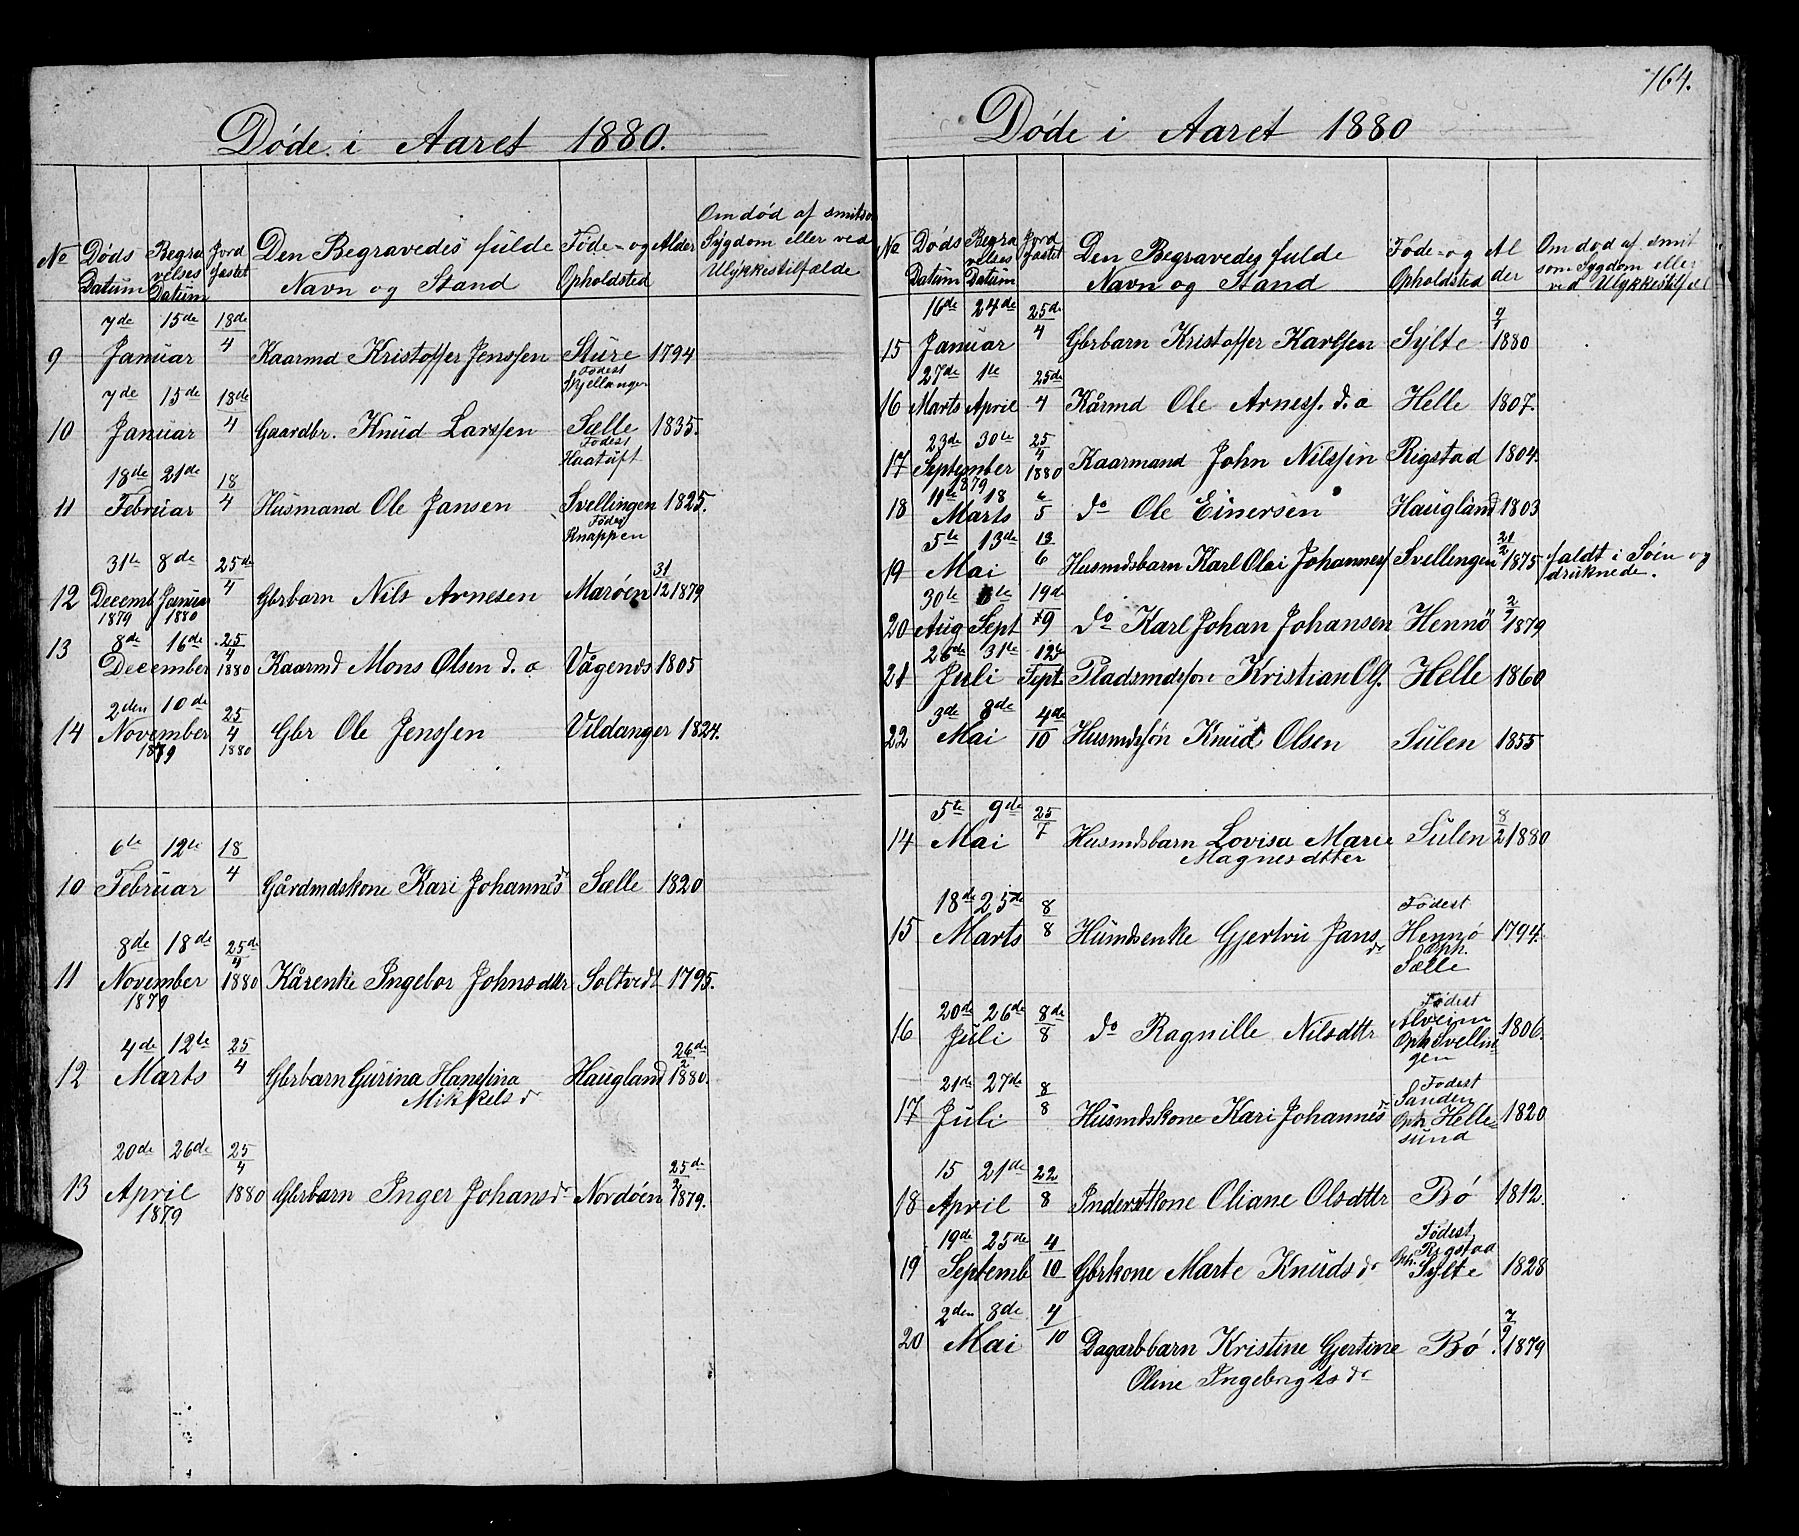 164.
Døde i Aaret 1880.
No Døds Datum Begravelses Datum Jordfæstet Den Begravedes fulde Navn og Stand Føde- og Opholdsted Alder Om død af smitsom Sygdom eller ved Ulykkestilfælde
7de 15de 18de
9 Januar 4 Kaarmd Kristoffer Jenssen Sture 1794
Fødest
Kjellanger
7de 15de 18de
10 Januar 4 Gaardbr. Knud Larssen Sælle 1835.
Fødest
Haatuft
18de 21de 18
11 Februar 4 Husmand Ole Jansen Svellingen 1825.
Fødest
Knappen
31te 8de 25de
12 Decemb Januar 4 Gbrbarn Nils Arnesen Marøen 31/12 1879
1879 1880
8de 16de 25/4
13 December 1880 Kaarmd Mons Olsen d. a Vågenæs 1805
2den 10de 25
14 November 4 Gbr Ole Jenssen Vildanger 1824.
1879 1880
6te 12te 18
10 Februar 4 Gårdmdskone Kari Johannesdr Sælle 1820
8de 18de 25de/4
11 November 1880 Kårenke Ingebor Johnsdttr Soltvedt 1795.
1879
4de 12te 25 26de
12 Marts 4 Gbrbarn Gurina Hanssina Haugland 2 1880.
Mikkelsdr
20de 26de 25/4 25de
13 April 1880 Gbrbarn Inger Johansdr Nordøen 2 1879.
1879
Døde i Aaret 1880
No Døds Datum Begravelses Datum Jordfæstet Den Begravedes fulde Navn og Stand Føde- og Opholdsted Alder Om død af smitsom Sygdom eller ved Ulykkestilfæl
16de 24de 25de
15 Januar 4 Gbrbarn Kristoffer Karlssen Sylte 9/1 1880
27de 1te 25de
16 Marts April 4 Kårmd Ole Arness. d. a Helle 1807.
23de 30te 25/4
17 September 1880 Kaarmand John Nilssen Rigstad 1804.
1879
11te 18 6
18 Marts 5 do Ole Einersen Haugland 1803
5te 13de 13
19 Mai 6 Husmdsbarn Karl Olai Johanness Svellingen 21/2 1875 faldt i Søen og
druknede.
30te 6te 19de
20 Aug Sept 9 do Karl Johan Johansen Hennö 2/9 1879
26de 31te 12te
21 Juli Sept Pladsmdssøn Kristian Ols. Helle 1860
3de 8de 4de
22 Mai 10 Husmdssøn Knud Olsen Sulen 1855
5te 9de 25
14 Mai 7 Husmdsbarn Lovisa Marie Sulen 8/2 1880
Magnesdtter
18de 25de 8 Fødest
15 Marts 8 Husmdsenke Gjertru Jansdr Hennø 1794.
Oph.
Sælle
20de 26de 8de Fødest
16 Juli 8 do Ragnille Nilsdttr Alveim 1806.
Oph Svellingen
21de 27de 8 Fødest
17 Juli 8 Husmdskone Kari Johannesdr Sanden 1820
Oph Hellesund
15 21de 22
18 April 8 Inderstkone Oliane Olsdttr Bø 1812.
19de 25de 4 Fødest
19 Septemb 10 Gbrkone Marte Knudsdr Rygstad 1828
Oph. Sylte
2den 8de 4
20 Mai 10 Dagarbbarn Kristine Gjertine Bø 7/9 1879
Oline Ingebrigtsdr